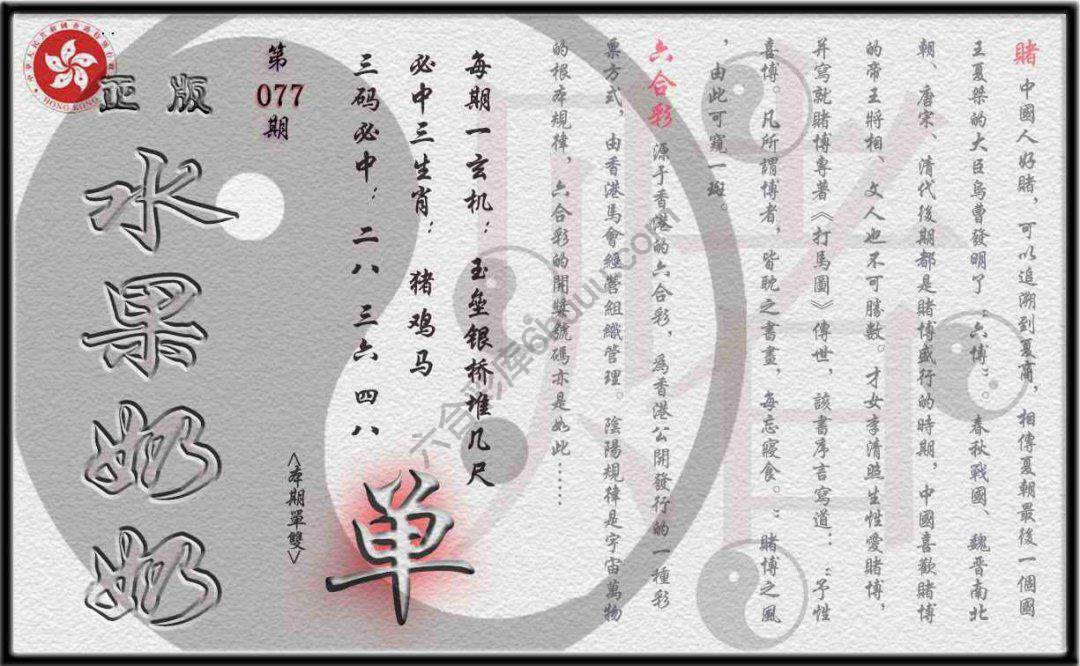 賭 中國人好賭，可以追溯到夏商，相傳夏朝最後一個國
王夏桀的大臣烏曹發明了“六博”。春秋戰國、魏晋南北
朝、唐宋、清代後期都是賭博盛行的時期，中國喜歡賭博
的帝王將相、文人也不可勝數。才女李清照生性愛賭博，
并寫就賭博專著《打馬圖》傳世，該書序言寫道：“予性
喜博。凡所謂博者，皆耽之書畫，每忘寢食。”賭博之風
，由此可窺一斑。
六合彩 源于香港的六合彩，爲香港公開發行的一種彩
票方式，由香港馬會經營組織管理。陰陽規律是宇宙萬物
的根本規律，六合彩的開獎號碼亦是如此……
每期一玄机：玉壘银桥堆几尺
必中三生肖：猪鸡马
三码必中：二八 三六 四八
单
<本期單雙>
第
077
期
正版
水果奶奶
HONG KONG
六合彩库66uuu.com